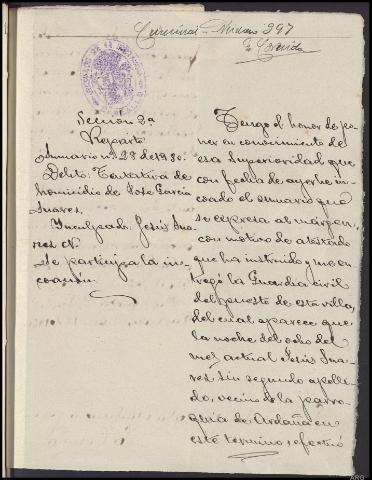 Criminal
397
Sección 2ª
Reparto
Sumario nº 28 de 1930.
Delito: Tentativa de
homicidio de Jose García
Suares.
Inculpado: Jesús Sua
res
Se participa la in
coación.
Tengo el honor de po
ner en conocimiento de
esa Superioridad que
con fecha de ayer he in
coado el sumario que
se expresa al margen,
con motivo de atestado
que ha instruido, y me en
tregó la Guardia civil
del puesto de esta villa,
del cual aparece que
la noche del ocho del
mes actual Jesús Sua
res sin segundo apelli
do, vecino de la parro
quia de Ardaña en
este término, efectuó
ARG